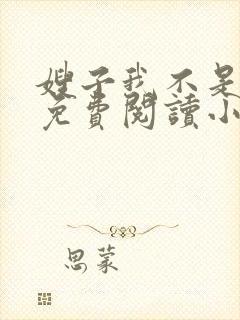 嫂子我不是
免費閱讀小
思蒙